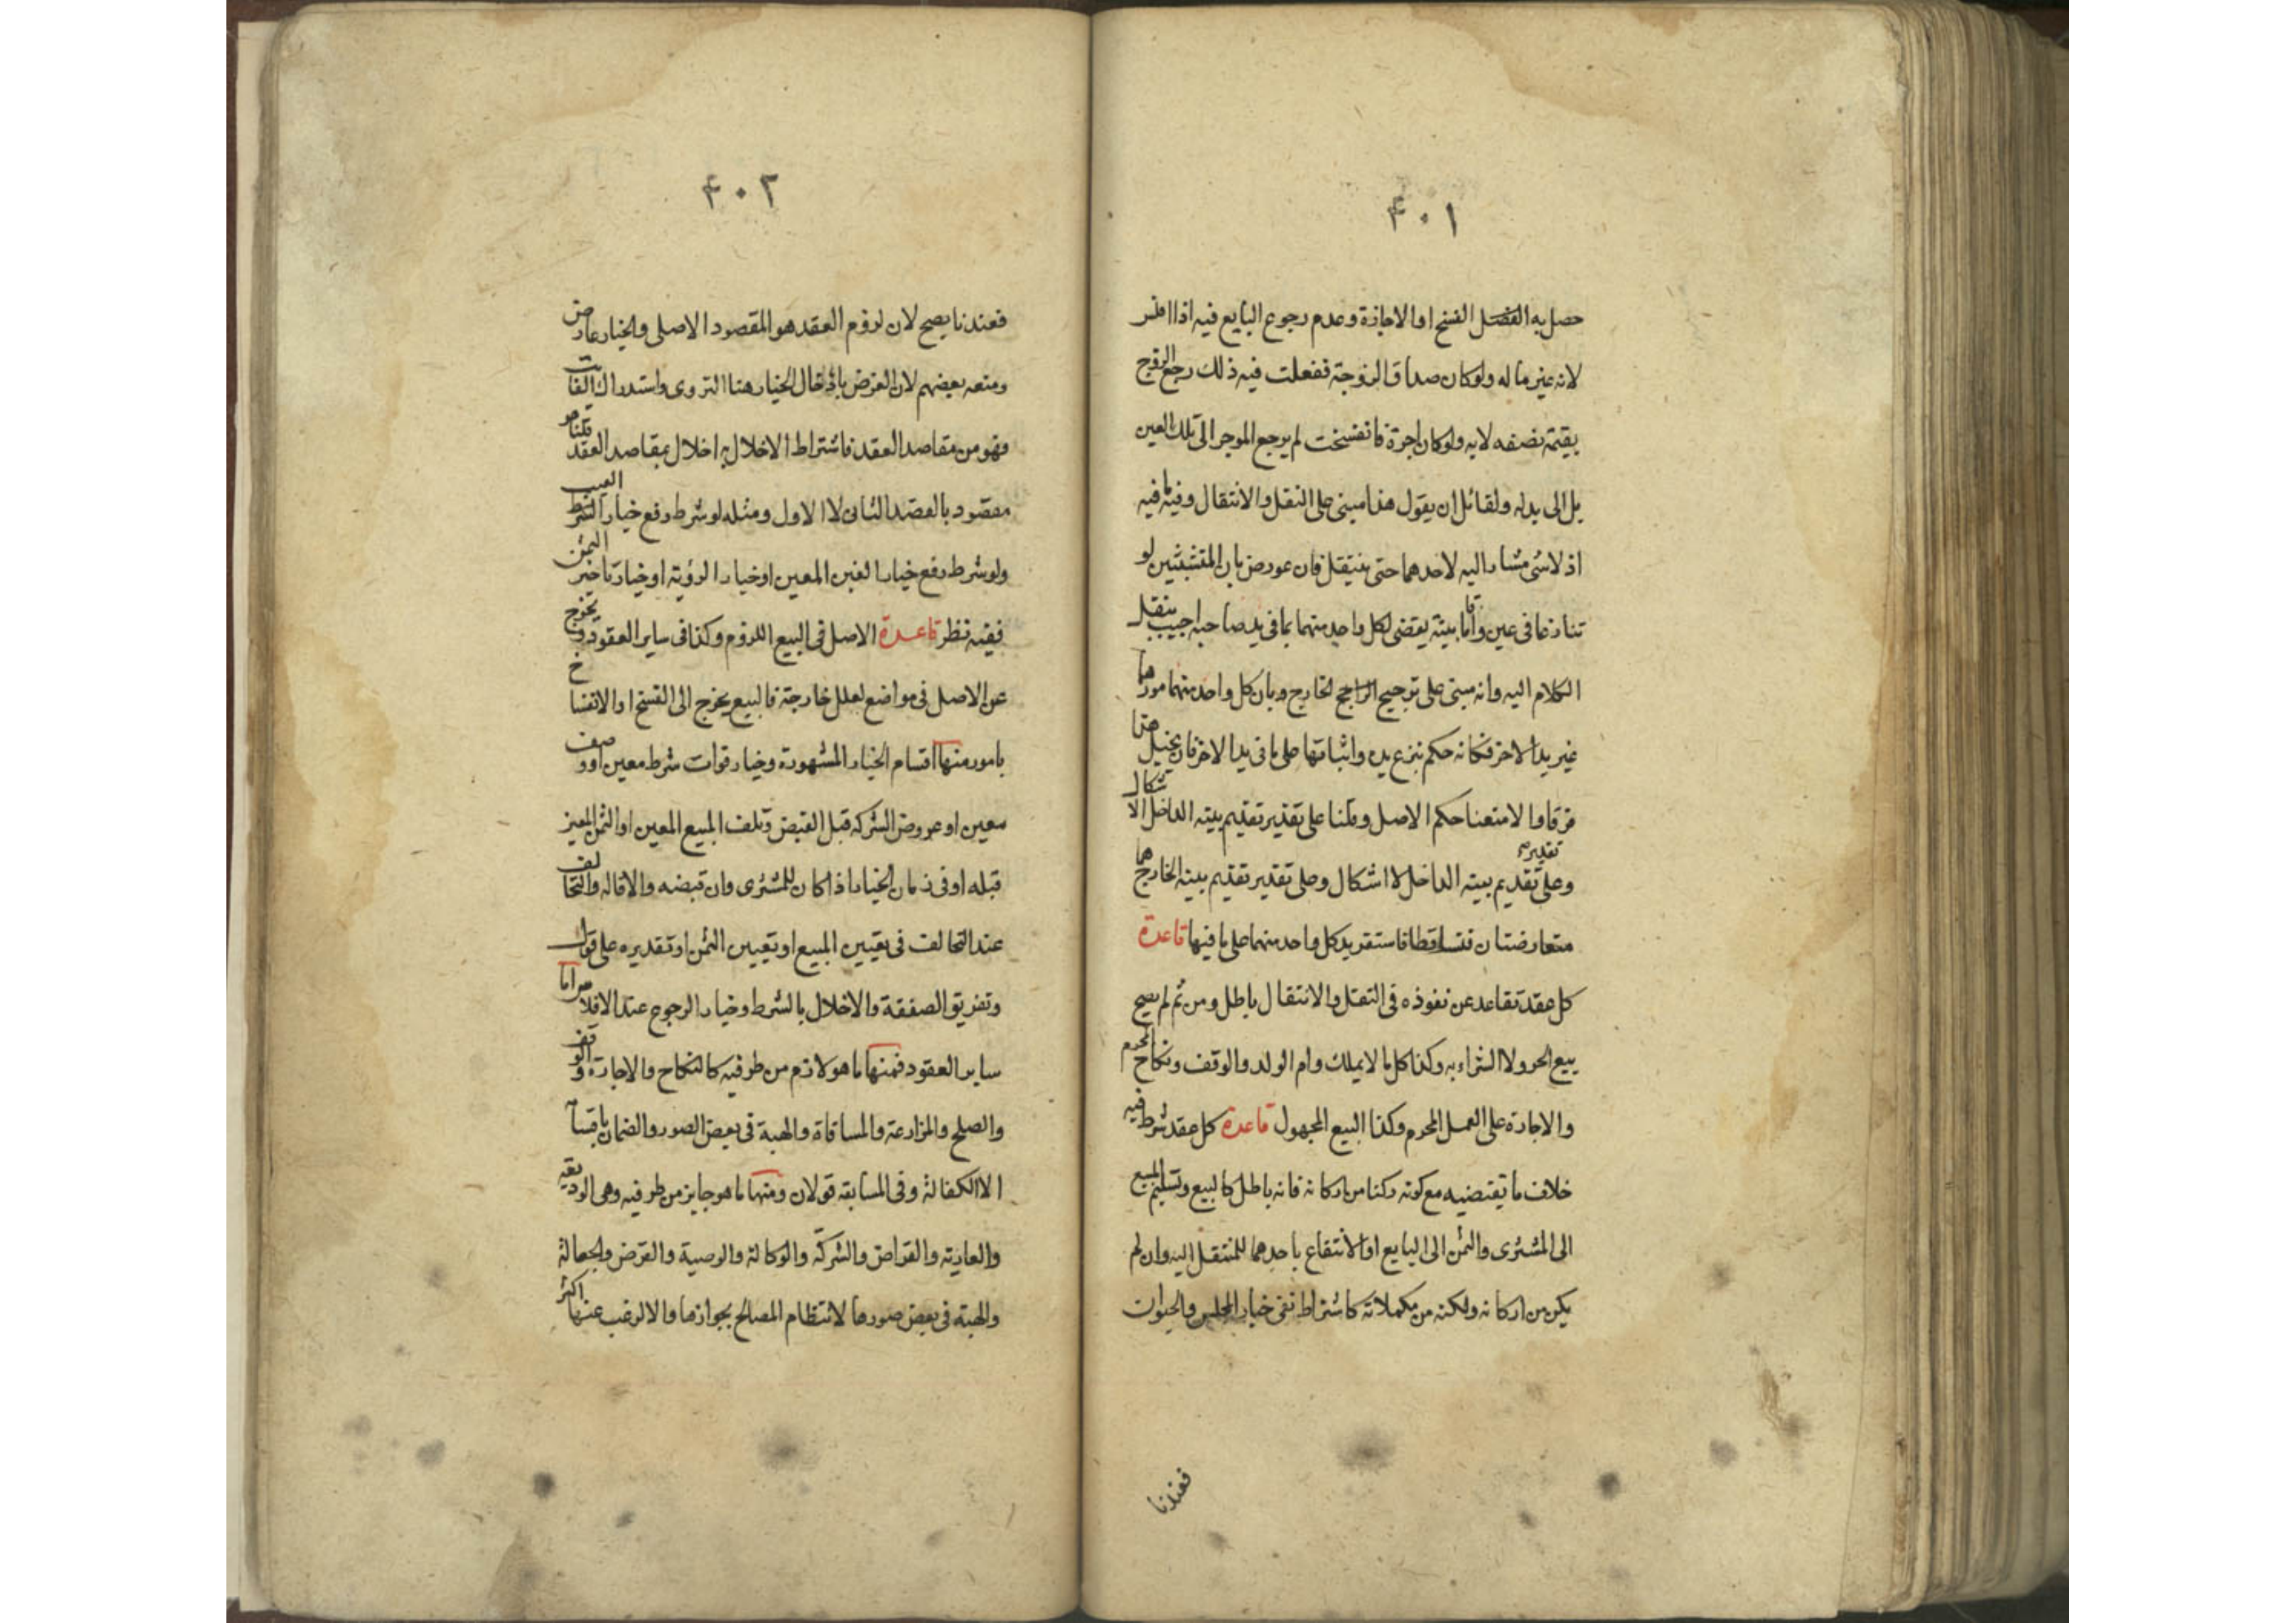 ٤٠١
حصل به الفصل الفسخ او الاجازة وعدم رجوع البايع فيه اذا افلس
لانه غير ماله ولو كان صداق الزوجة ففعلت فيه ذلك رجع الزوج
بقيمة نصفه لا به ولو كان اجرة فانفسخت لم يرجع الموجر الى تلك العين
بل الى بدله ولقائل ان يقول هذا مبنى على النقل والانتقال وفيه ما فيه
اذ لا شى مشار اليه لاحدهما حتى ينتقل فان عورض بان المتشبثين لو
تنازعا فى عين واقاما بينة يقضى لكل واحد منهما بما فى يد صاحبه اجيب بنقل
الكلام اليه وانه مبنى على ترجيح الراجح الخارج وبان كل واحد منهما مورها
غير يد الاخر فكانه حكم بنزع يده واثباتها على ما فى يد الاخر فان يخيل هنا
فرقا والا متعنا حكم الاصل وقلنا على تقدير تقديم بينه الداخل الاشكال
وعلى تقدير تقديم بينه الداخل لا اشكال وعلى تقدير تقديم بينه الخارج هما
متعارضتان فتساقطا فاستقر يد كل واحد منهما على ما فيها قاعدة
كل عقد تقاعد عن نفوذه فى النقل والانتقال باطل ومن ثم لم يصح
بيع الحر ولا الشراء به وكذا كل ما لا يملك وام الولد والوقف ونكاح المحرم
والاجارة على العمل المحرم وكذا البيع المجهول قاعدة كل عقد شرط فيه
خلاف ما يقتضيه مع كونه ركنا من اركانه فانه باطل كالبيع وتسليم المبيع
الى المشترى والثمن الى البايع او الانتفاع باحدهما للمنتقل اليه وان لم
يكن من اركانه ولكنه من مكملاته كاشتراط نفى خيار المجلس والحيوان
فعندنا
٤٠٢
فعندنا يصح لان لزوم العقد هو المقصود الاصلى والخيار عارض
ومنعه بعضهم لان الغرض بادخال الخيار هنا التروى واستدراك الفائت
فهو من مقاصد العقد فاشتراط الاخلال به اخلال بمقاصد العقد قلنا هو
مقصود بالقصد الثانى لا الاول ومثله لو شرط رفع خيار الشرط العيب
ولو شرط رفع خيار الغبن المعين او خيار الرؤية او خيار تاخير الثمن
ففيه نظر قاعدة الاصل فى البيع اللزوم وكذا فى ساير العقود ويخرج
عن الاصل فى مواضع لعلل خارجة فالبيع يخرج الى الفسخ او الانفساخ
بامور منها اقسام الخيار المشهورة وخيار فوات شرط معين او وصف
معين او عروض الشركة قبل القبض وتلف المبيع المعين او الثمن المعين
قبله او فى زمان الخيار اذا كان للمشترى وان قبضه والاقاله والتحالف
عند التحالف فى تعيين المبيع او تعيين الثمن او تقديره على قول
وتفريق الصفقة والاخلال بالشرط وخيار الرجوع عند الافلاس واما
ساير العقود فمنها ما هو لازم من طرفيه كالنكاح والاجارة والوقف
والصلح والمزارعة والمساقاة والهبة فى بعض الصور والضمان باقسامه
الا الكفالة وفى المسابقه قولان ومنها ما هو جايز من طرفيه وهى الوديعة
والعارية والقراض والشركة والوكالة والوصية والقرض والجعالة
والهبة فى بعض صورها لانتظام المصالح بجوازها والا لرغب عنها اكثر